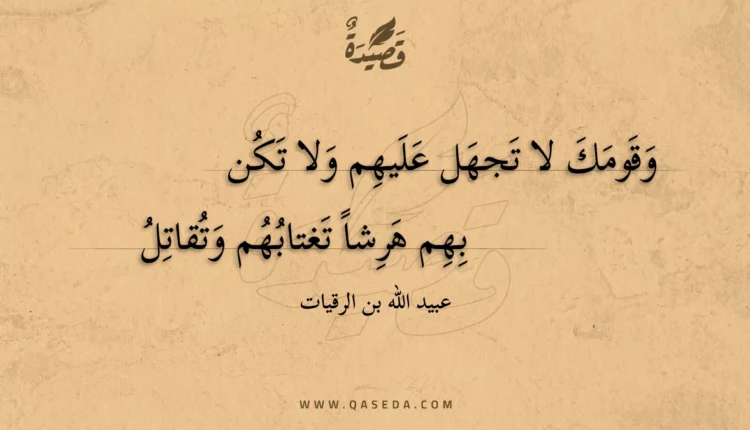 قَصِيْدَةٌ
وَقَومَكَ لا تَجهَل عَلَيهِم وَلا تَكُن
بِهِم هَرِشاً تَغتابُهُم وَتُقاتِلُ
عبيد الله بن الرقيات
WWW.QASEDA.COM